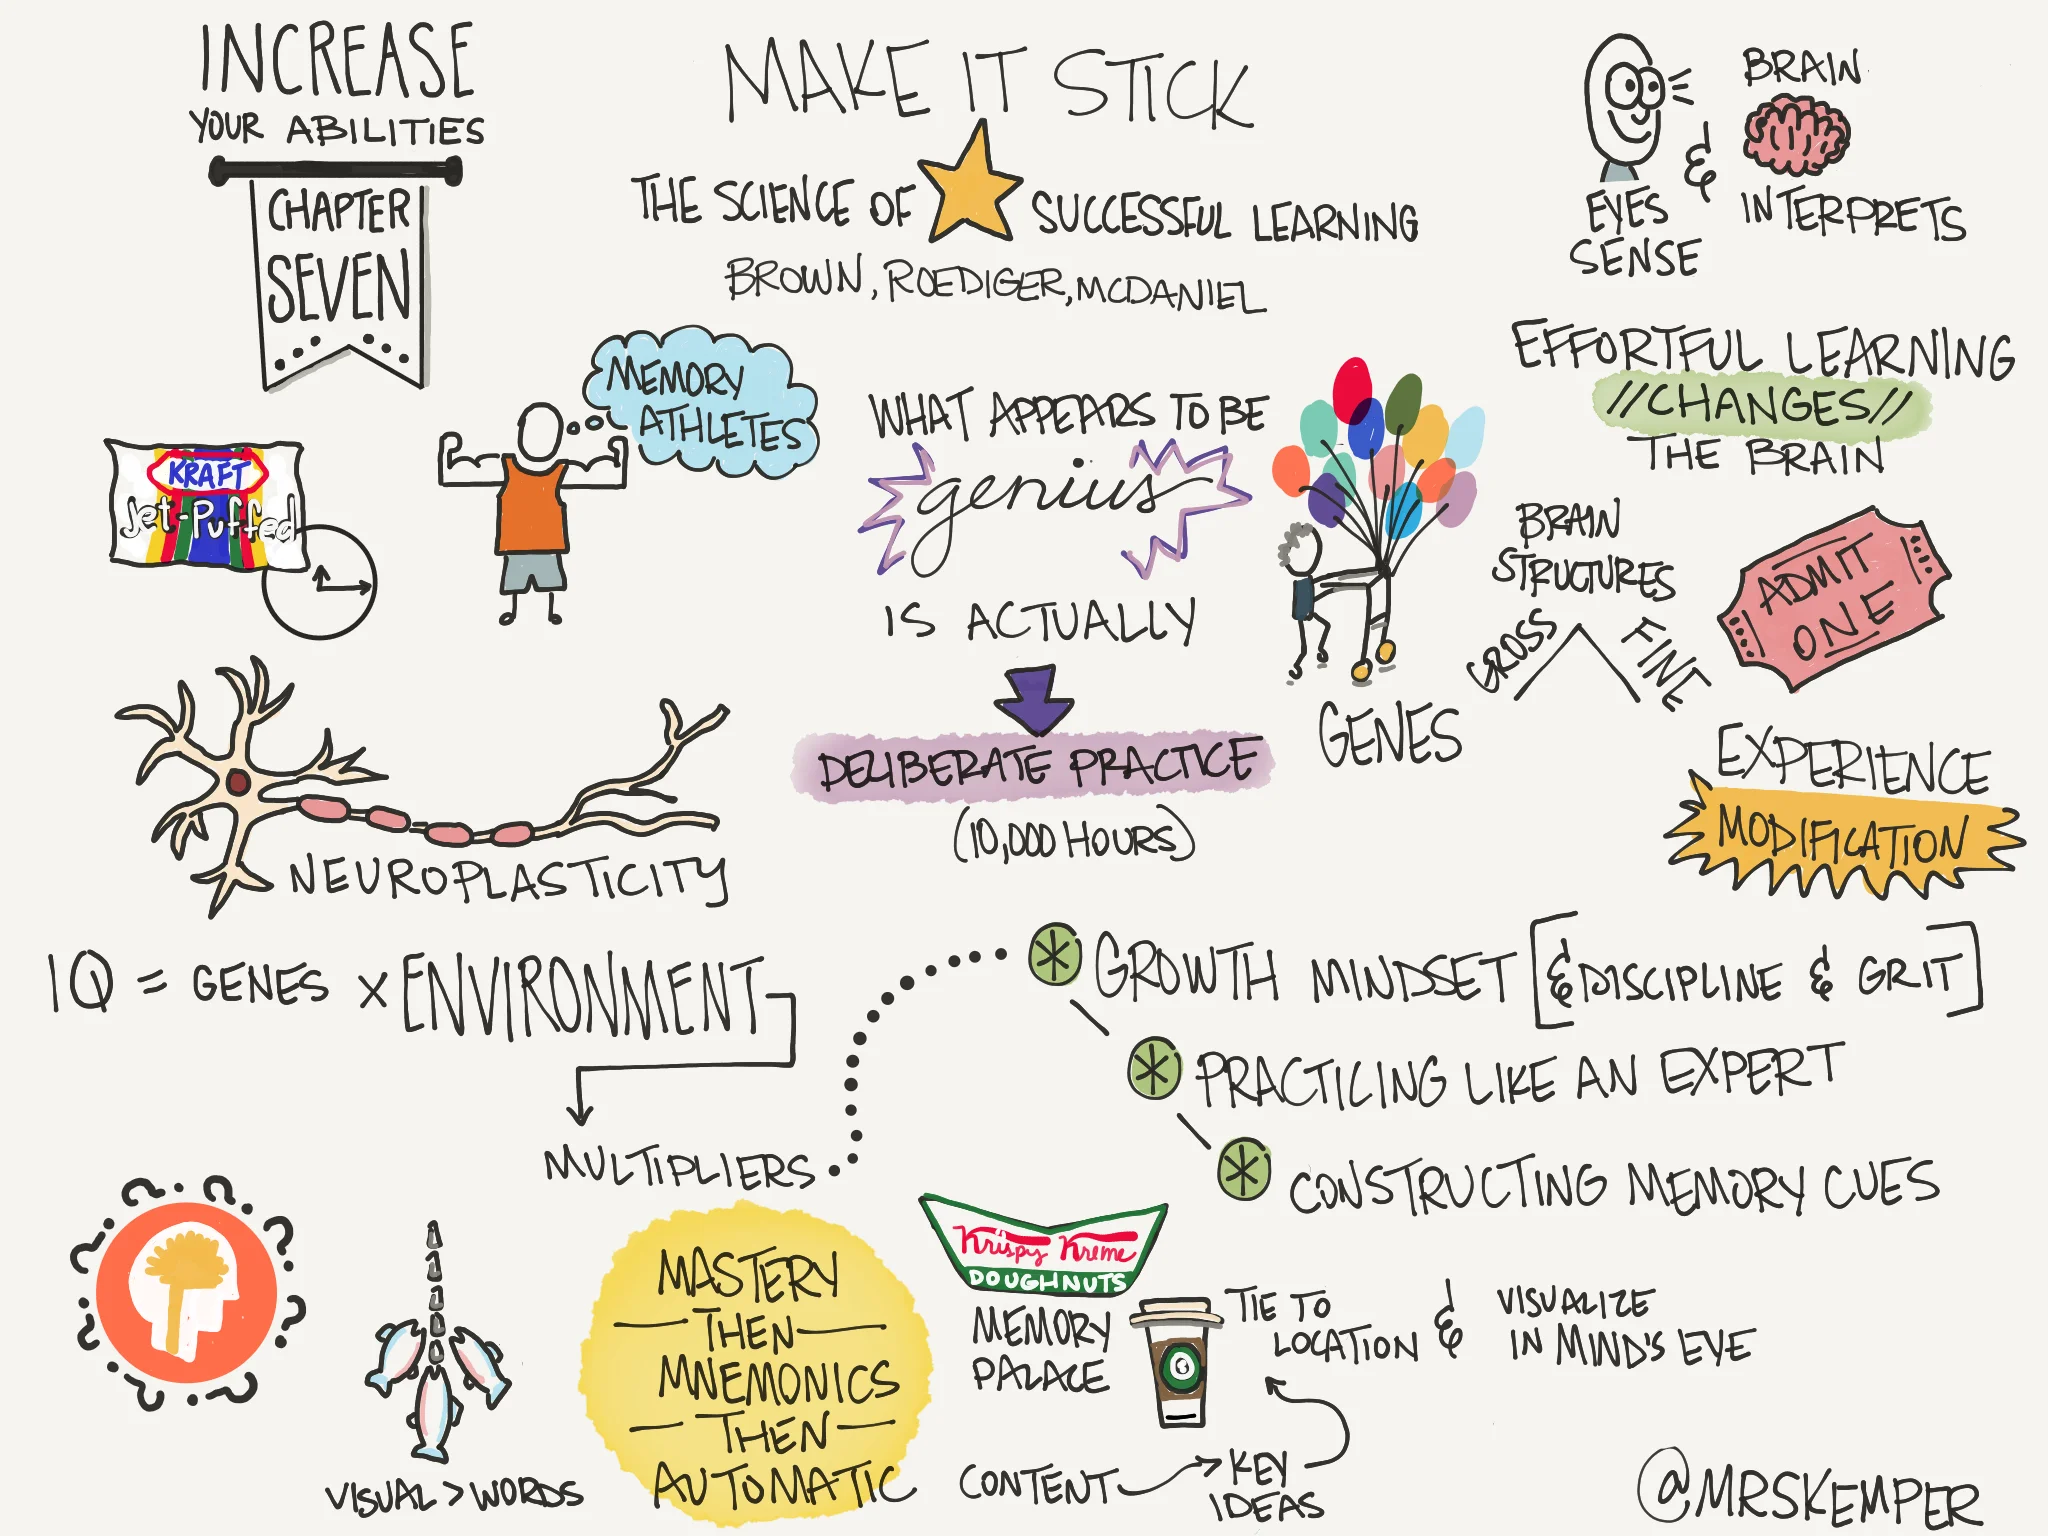 INCREASE
YOUR ABILITIES
CHAPTER
SEVEN
MAKE IT STICK
THE SCIENCE OF SUCCESSFUL LEARNING
BROWN, ROEDIGER, MCDANIEL
BRAIN
EYES
SENSE
&
INTERPRETS
MEMORY
ATHLETES
KRAFT
Jet-Puffed
WHAT APPEARS TO BE
genius
IS ACTUALLY
DELIBERATE PRACTICE
(10,000 HOURS)
GENES
EFFORTFUL LEARNING
//CHANGES//
THE BRAIN
BRAIN
STRUCTURES
GROSS
FINE
ADMIT
ONE
EXPERIENCE
MODIFICATION
NEUROPLASTICITY
IQ = GENES x ENVIRONMENT
MULTIPLIERS
* GROWTH MINDSET [& DISCIPLINE & GRIT]
* PRACTICING LIKE AN EXPERT
* CONSTRUCTING MEMORY CUES
VISUAL > WORDS
MASTERY
THEN
MNEMONICS
THEN
AUTOMATIC
Krispy Kreme
DOUGHNUTS
MEMORY
PALACE
TIE TO
LOCATION
&
VISUALIZE
IN MIND'S EYE
CONTENT
KEY
IDEAS
@MRSKEMPER